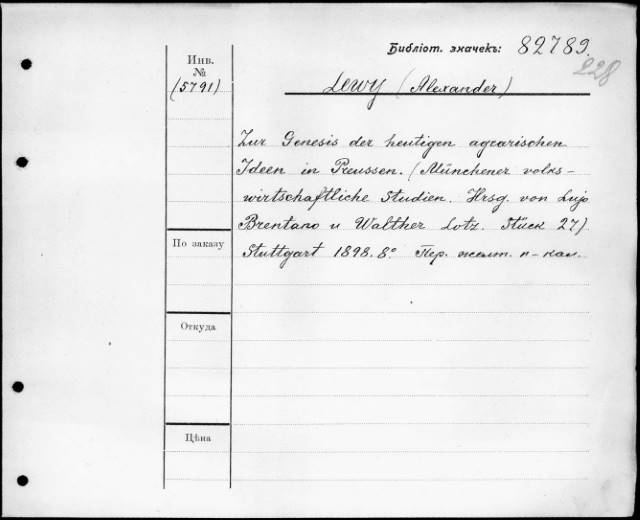 Библіот. значекъ: 82789.
228
Инв.
№
(5791)
Lewy (Alexander)
Zur Genesis der heutigen agrarischen
Ideen in Preussen. (Münchener volks-
wirtschaftliche Studien. Hrsg. von Lujo
Brentano u Walther Lotz. Stück 27)
Stuttgart 1898. 8° Пер. желт. п-кал.
По заказу
Откуда
Цѣна